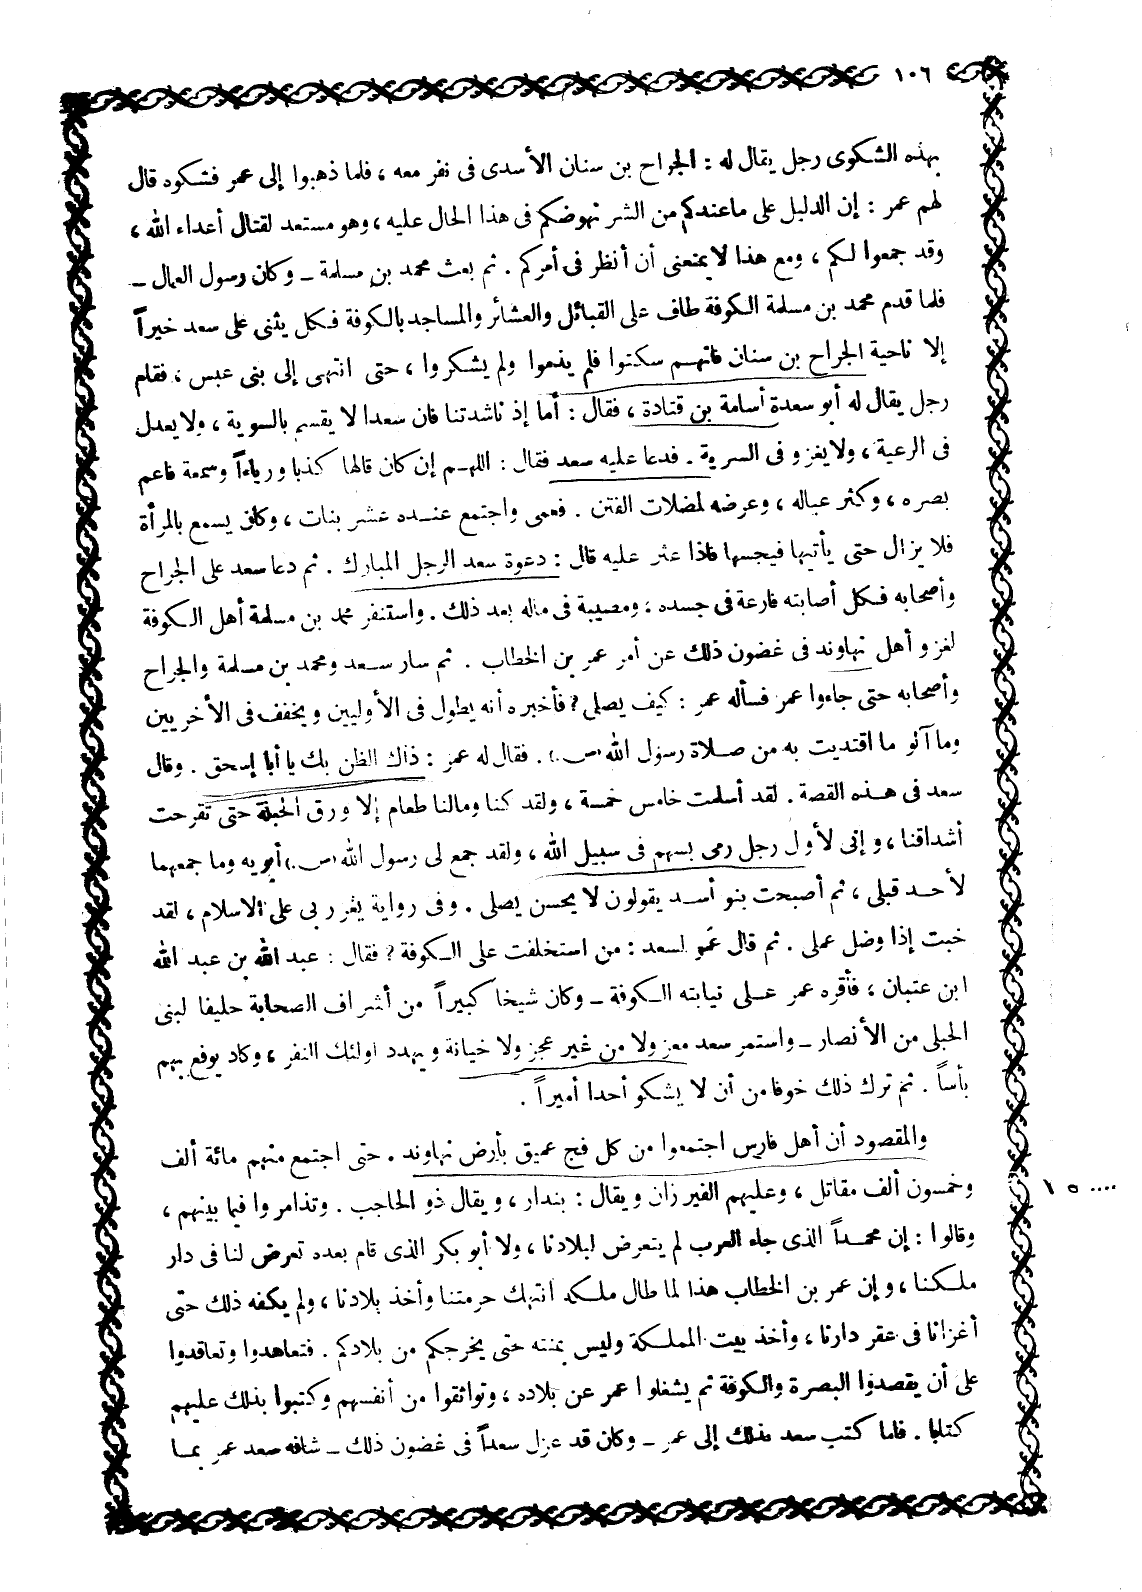 ١٠٦
بهذه الشكوى رجل يقال له : الجراح بن سنان الأسدى فى نفر معه ، فلما ذهبوا إلى عمر فشكوه قال
لهم عمر : إن الدليل على ماعندكم من الشر نهوضكم فى هذا الحال عليه ، وهو مستعد لقتال أعداء الله ،
وقد جمعوا لكم ، ومع هذا لا يمنعنى أن أنظر فى أمركم . ثم بعث محمد بن مسلمة ــ وكان رسول العمال ــ
فلما قدم محمد بن مسلمة الكوفة طاف على القبائل والعشائر والمساجد بالكوفة فكل يثنى على سعد خيراً
إلا ناحية الجراح بن سنان فانهم سكتوا فلم يذموا ولم يشكروا ، حتى انتهى إلى بنى عبس ، فقام
رجل يقال له أبو سعدة أسامة بن قتادة ، فقال : أما إذ ناشدتنا فان سعدا لا يقسم بالسوية ، ولا يعدل
فى الرعية ، ولا يغزو فى السرية . فدعا عليه سعد فقال : اللهم إن كان قالها كذبا ورياءاً وسمعة فاعم
بصره ، وكثر عياله ، وعرضه لمضلات الفتن . فعمى واجتمع عنده عشر بنات ، وكان يسمع بالمرأة
فلا يزال حتى يأتيها فيجسها فاذا عثر عليه قال : دعوة سعد الرجل المبارك . ثم دعا سعد على الجراح
وأصحابه فكل أصابته قارعة فى جسده ، ومصيبة فى ماله بعد ذلك . واستنفر محمد بن مسلمة أهل الكوفة
لغزو أهل نهاوند فى غضون ذلك عن أمر عمر بن الخطاب . ثم سار سعد ومحمد بن مسلمة والجراح
وأصحابه حتى جاءوا عمر فسأله عمر : كيف يصلى ؟ فأخبره أنه يطول فى الأوليين ويخفف فى الأخريين
وما آلو ما اقتديت به من صلاة رسول الله (ص.) . فقال له عمر : ذاك الظن بك يا أبا إسحق . وقال
سعد فى هذه القصة . لقد أسلمت خامس خمسة ، ولقد كنا ومالنا طعام إلا ورق الحبلة حتى تقرحت
أشداقنا ، و إنى لأول رجل رمى بسهم فى سبيل الله ، ولقد جمع لى رسول الله (ص.) أبويه وما جمعهما
لأحد قبلى ، ثم أصبحت بنو أسد يقولون لا يحسن يصلى . وفى رواية يغرر بى على الاسلام ، لقد
خبت إذا وضل عملى . ثم قال عمر لسعد : من استخلفت على الكوفة ؟ فقال : عبد الله بن عبد الله
ابن عتبان ، فأقره عمر على نيابته الكوفة ــ وكان شيخا كبيراً من أشراف الصحابة حليفا لبنى
الحبلى من الأنصار ــ واستمر سعد معزولا من غير عجز ولا خيانة ويهدد اولئك النفر ، وكاد يوقع بهم
بأساً . ثم ترك ذلك خوفا من أن لا يشكو أحدا أميراً .
والمقصود أن أهل فارس اجتمعوا من كل فج عميق بأرض نهاوند . حتى اجتمع منهم مائة ألف
وخمسون ألف مقاتل ، وعليهم الفيرزان ويقال : بندار ، ويقال ذو الحاجب . وتذامروا فيما بينهم ،
وقالوا : إن محمداً الذى جاء العرب لم يتعرض لبلادنا ، ولا أبو بكر الذى قام بعده تعرض لنا فى دار
ملكنا ، و إن عمر بن الخطاب هذا لما طال ملكه انتهك حرمتنا وأخذ بلادنا ، ولم يكفه ذلك حتى
أغزانا فى عقر دارنا ، وأخذ بيت المملكة وليس بمنته حتى يخرجكم من بلادكم . فتعاهدوا وتعاقدوا
على أن يقصدوا البصرة والكوفة ثم يشغلوا عمر عن بلاده ، وتواثقوا من أنفسهم وكتبوا بذلك عليهم
كتابا . فلما كتب سعد بذلك إلى عمر ــ وكان قد عزل سعداً فى غضون ذلك ــ شافه سعد عمر بما